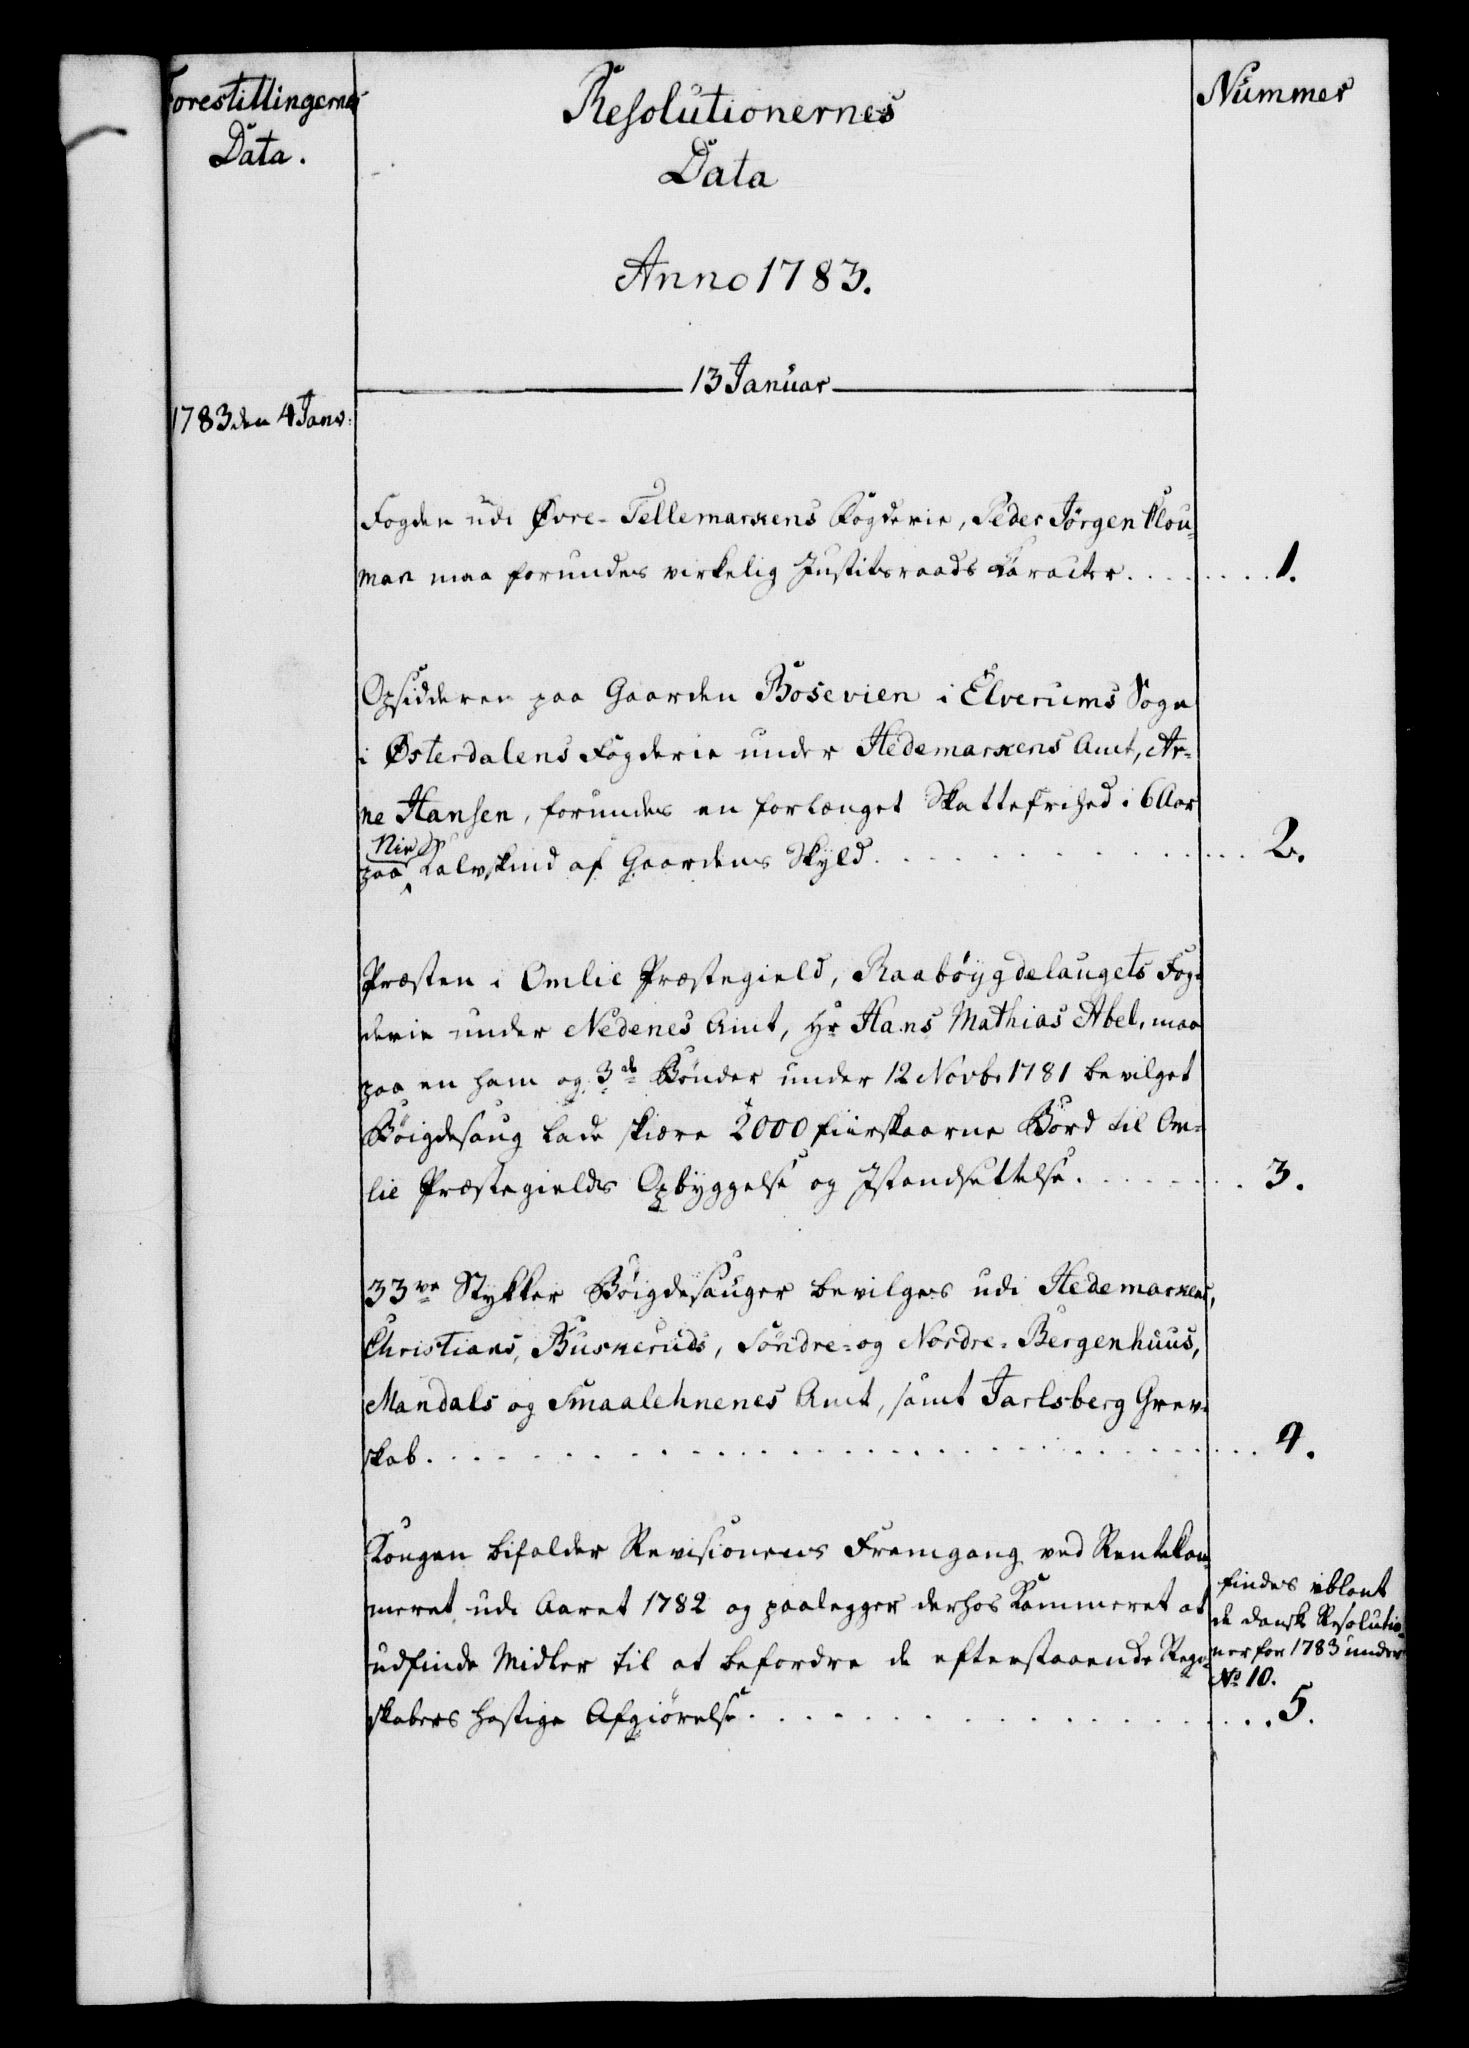 Forestillingernes
Data.
Resolutionernes
Data
Nummer
Anno 1783.
13 Januar
1783 den 4 Janv:
Fogden udi Øvre-Tellemarkens Fogderie, Peder Jörgen Clou-
man maa forundes virkelig Justitsraads Karacter........
1.
Opsidderen paa Gaarden Bosevien i Elverums Sogn
i Østerdalens Fogderie under Hedemarkens Amt, Ar-
ne Hansen, forundes en forlænget Skattefrihed i 6 Aar
Nie
paa Kalvskind af Gaardens Skyld..............
2.
Præsten i Omlie Præstegield, Raabøygdelaugets Fog-
derie under Nedenes Amt, Hr Hans Mathias Abel, maa
paa en ham og 3de Bönder under 12 Novb. 1781 bevilget
Böigdesaug lade skiære 2000 fiirskaarne Bord til Om-
lie Præstegields Opbyggelse og Istandsettelse........
3.
33ve Stykker Böigdesauger bevilges udi Hedemarkens,
Christians, Buskeruds, Söndre- og Nordre-Bergenhuus,
Mandals og Smaalehnenes Amt, samt Jarlsberg Grev-
skab..............................
4.
Kongen bifalder Revisionens Fremgang ved Rentekam-
meret udi Aaret 1782 og paalegger derhos Kammeret at
udfinde Midler til at befordre de efterstaaende Regn-
skabers hastige Afgiörelse..................
findes iblant
de danske Resolutio-
ner for 1783 under
No 10.
5.